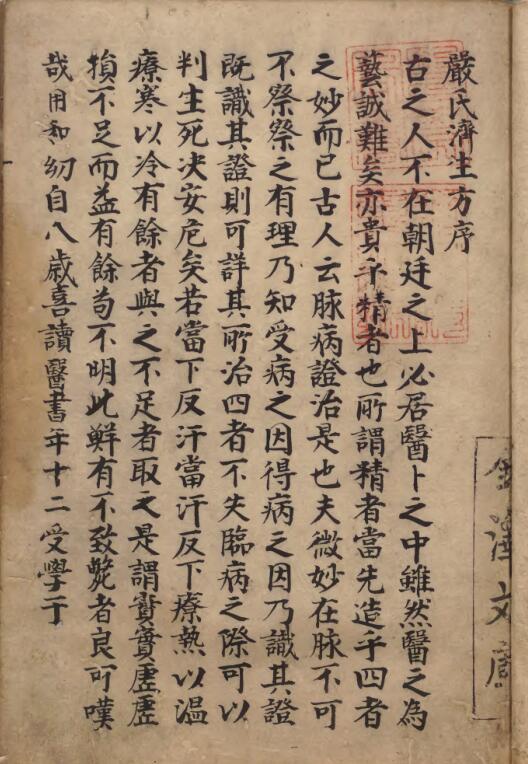 嚴氏濟生方序
古之人不在朝廷之上必居醫卜之中雖然醫之為
藝誠難矣亦貴乎精者也所謂精者當先造乎四者
之妙而已古人云脉病證治是也夫微妙在脉不可
不察察之有理乃知受病之因得病之因乃識其證
既識其證則可詳其所治四者不失臨病之際可以
判生死决安危矣若當下反汗當汗反下療熱以温
療寒以冷有餘者與之不足者取之是謂實實虛虛
損不足而益有餘苟不明此鮮有不致斃者良可嘆
哉用和幼自八歲喜讀醫書年十二受學于
金澤文庫